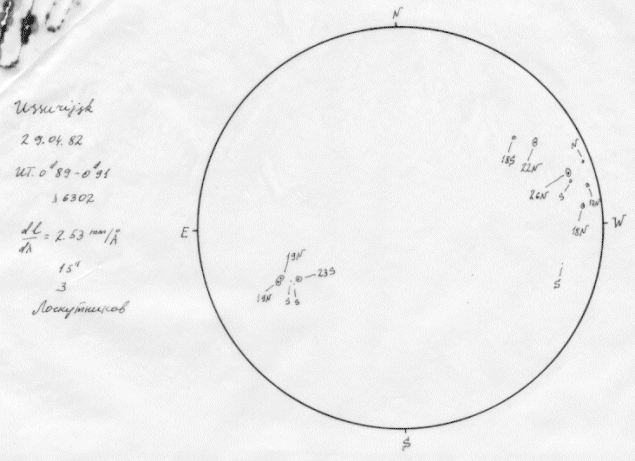 N
Ussurijsk
29.04.82
UT. 0ᵈ89-0ᵈ91
λ6302
dl/dλ = 2.53 mm/Å
15"
3
Лоскутников
N
18S
22N
26N
S
17N
18N
E
W
S
19N
19N
23S
S
S
S